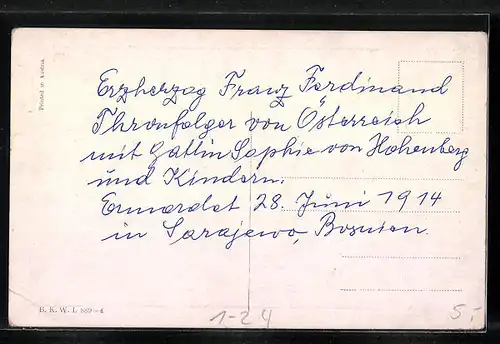 Printed in Austria.
Erzherzog Franz Ferdinand
Thronfolger von Österreich
mit Gattin Sophie von Hohenberg
und Kindern.
Ermordet 28. Juni 1914
in Sarajewo, Bosnien.
B. K. W. I. 889-4
1-24
5,-